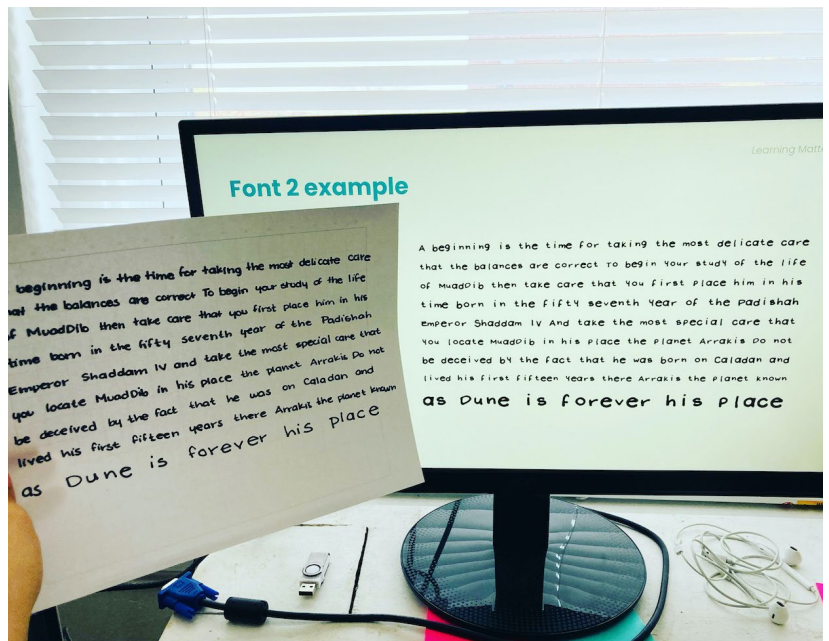 Learning Matt
Font 2 example
beginning is the time for taking the most delicate care
the balances are correct To begin your study of the life
MuadDib then take care that you first place him in his
time born in the fifty seventh year of the Padishah
Emperor Shaddam IV and take the most special care that
you locate MuadDib in his place the planet Arrakis Do not
be deceived by the fact that he was on Caladan and
lived his first fifteen years there Arrakis the planet known
as Dune is forever his place
A beginning is the time for taking the most delicate care
that the balances are correct To begin your study of the life
of MuadDib then take care that you first place him in his
time born in the fifty seventh year of the Padishah
Emperor Shaddam IV And take the most special care that
you locate MuadDib in his place the planet Arrakis Do not
be deceived by the fact that he was born on Caladan and
lived his first fifteen years there Arrakis the planet known
as Dune is forever his place